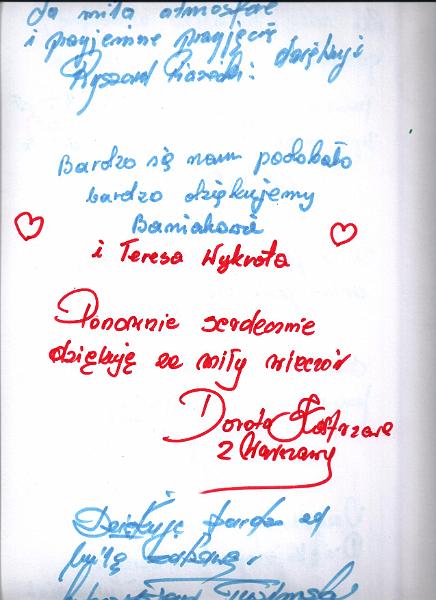 za miłą atmosferę
i przyjemne przyjęcie
dziękuję
Ryszard
Bardzo się nam podobało
bardzo dziękujemy
Baniakowie
i Teresa Wykrota
Ponownie serdecznie
dziękuję za miły wieczór
Dorota
z Warszawy
Dziękuję bardzo za
miłą zabawę.